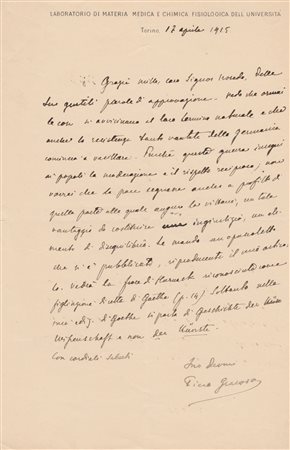 LABORATORIO DI MATERIA MEDICA E CHIMICA FISIOLOGICA DELL'UNIVERSITÀ
Torino 17 aprile 1915
Grazie mille, caro Signor, della
Sue gentili parole di approvazione. Vedo che ormai
le cose si avvicinano al loro termine naturale e che
anche la resistenza tanto vantata della Germania
comincia a vacillare. Purché questa guerra insegni
ai popoli la moderazione e il rispetto reciproco; non
vorrei che la pace segnasse anche a profitto di
quella parte alla quale auguro la vittoria, un tale
vantaggio da costituire una ingiustizia, un ele-
mento di disequilibrio. Le mando un opuscoletto
che si è pubblicato, riproducente il mio articolo
la frase di riconosciuta come
figliazione di quella di Goethe (p. 14) Soltanto nella
mia ediz. di Goethe si parla di Geschichte der
Wissenschaft e non der Künste
Con cordiali saluti
Suo devmo